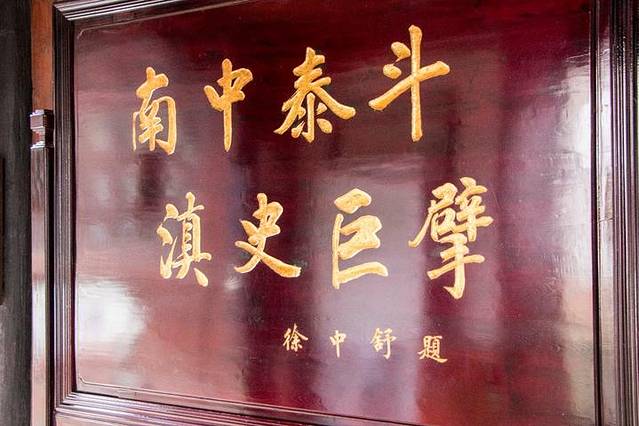 南中泰斗
滇史巨擘
徐中舒題